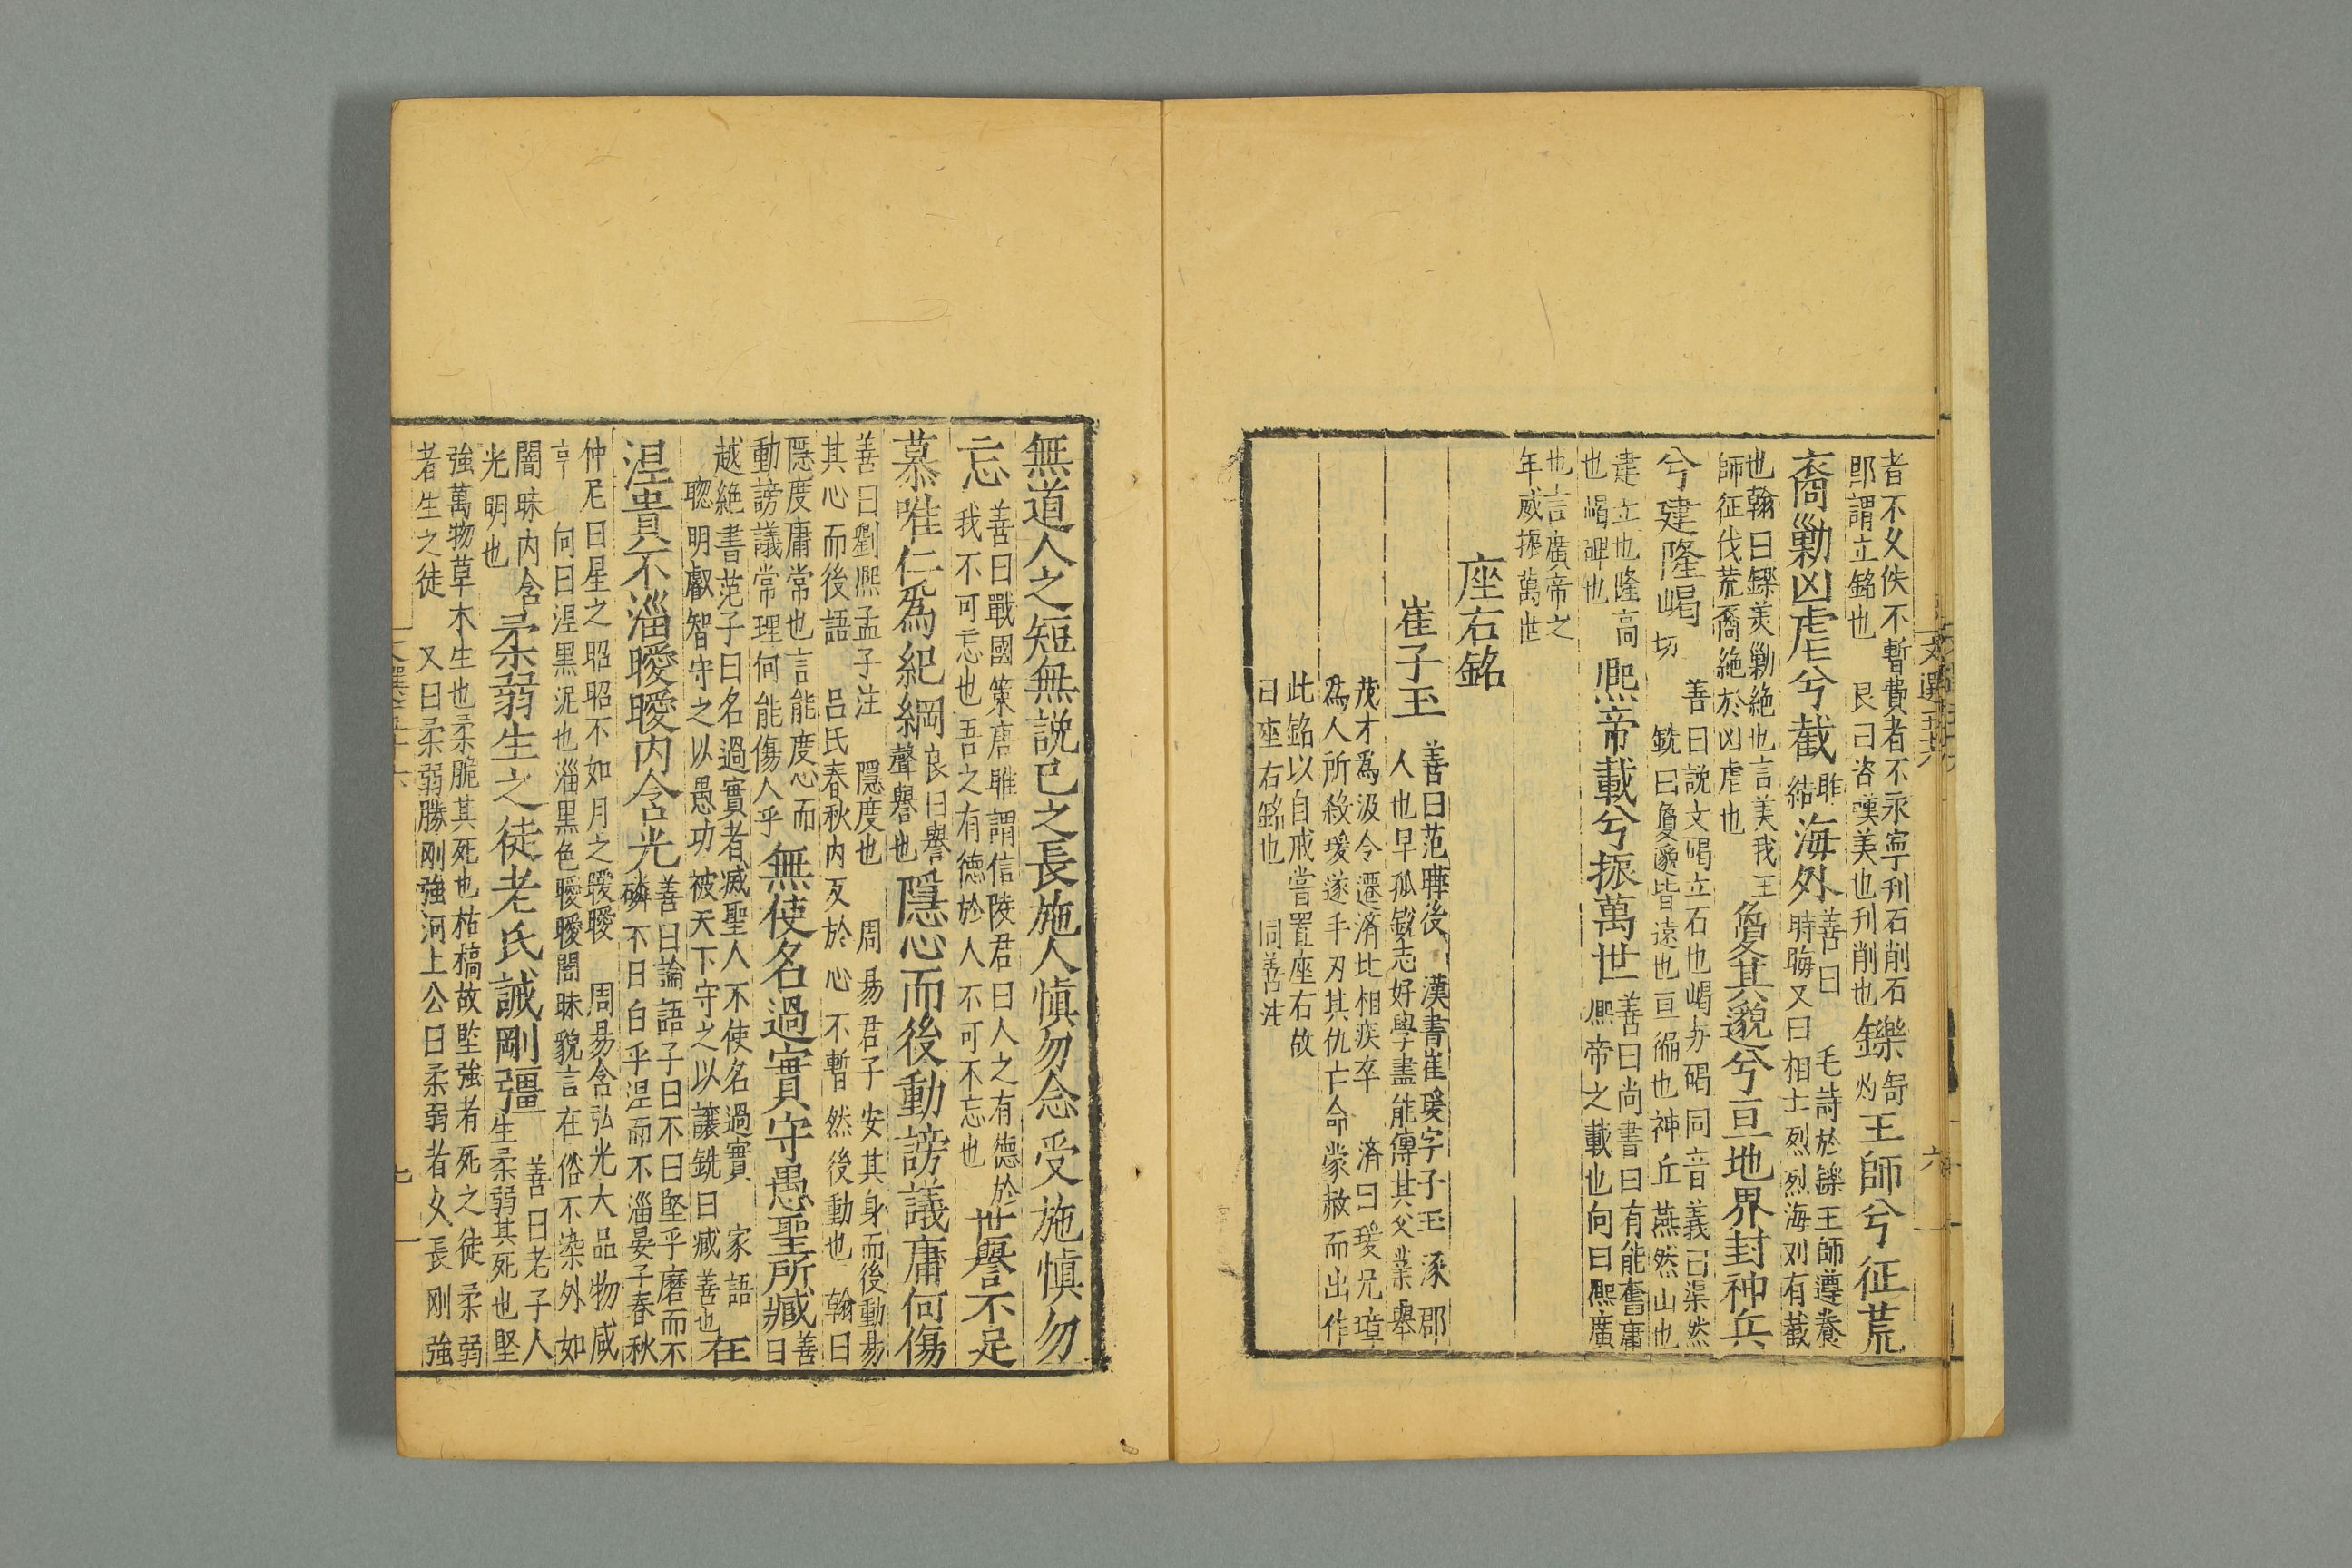 者不久佚不暫費者不永寧刊石削石
即謂立銘也 良曰咨嘆美也刊削也
鑠
舒
灼
王師兮征荒
裔勦凶虐兮截
昨
結
海外
善曰 毛詩於鑠王師遵養
時晦又曰相士烈烈海外有截
也翰曰鑠美勦絶也言美我王
師征伐荒裔絶於凶虐也
敻其邈兮亘地界封神丘
兮建隆嵑
切 善曰説文碣立石也嵑与碣同音義曰渠然
銑曰敻邈皆遠也亘徧也神丘燕然山也
建立也隆高
也嵑碑也
熈帝載兮振萬世
善曰尚書曰有能奮庸
熈帝之載也向曰熈廣
也言廣帝之
年威振萬世
座右銘
崔子玉
善曰范曄後漢書崔瑗字子玉涿郡
人也早孤鋭志好學盡能傳其父業舉
茂才爲汲令遷濟北相疾卒 濟曰瑗兄璋
爲人所殺瑗遂手刃其仇亡命蒙赦而出作
此銘以自戒嘗置座右故
曰座右銘也 同善注
文選五十六
六
無道人之短無説己之長施人慎勿念受施慎勿
忘
善曰戰國策唐雎謂信陵君曰人之有德於
我不可忘也吾之有德於人不可不忘也
世譽不足
慕唯仁爲紀綱
良曰譽
聲譽也
隱心而後動謗議庸何傷
善曰劉熈孟子注 隱度也 周易君子安其身而後動易
其心而後語 呂氏春秋内反於心不暫然後動也 翰曰
隱度庸常也言能度心而
動謗議常理何能傷人乎
無使名過實守愚聖所臧
善
曰
越絶書范子曰名過實者滅聖人不使名過實 家語
聦明叡智守之以愚功被天下守之以讓銑曰臧善也
在
涅貴不淄曖曖内含光
善曰論語子曰不曰堅乎磨而不
磷不曰白乎涅而不淄晏子春秋
仲尼曰星之昭昭不如月之曖曖 周易含弘光大品物咸
亨 向曰涅黒泥也淄黒色曖曖闇昧貌言在俗不染外如
闇昧内含
光明也
柔弱生之徒老氏誡剛彊
善曰老子人
生柔弱其死也堅
強萬物草木生也柔脆其死也枯槁故堅強者死之徒柔弱
者生之徒 又曰柔弱勝剛強河上公曰柔弱者久長剛強
文選五十六
七